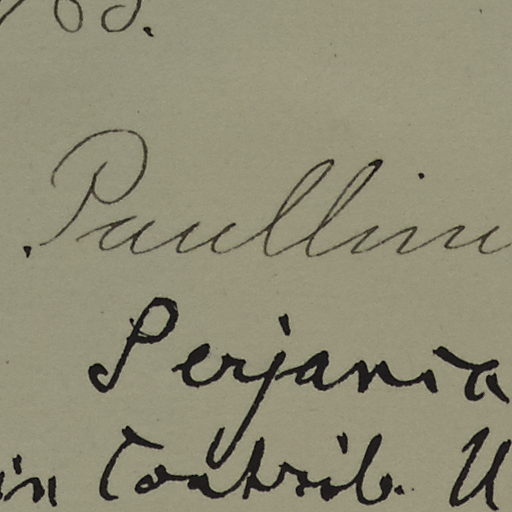 Paullin
Serjania
in Contrib. U